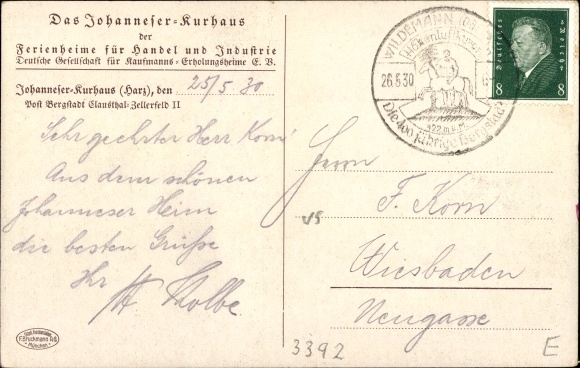 Das Johanneser-Kurhaus
der
Ferienheime für Handel und Industrie
Deutsche Gesellschaft für Kaufmanns-Erholungsheime E. V.
Johanneser-Kurhaus (Harz), den 25/5 30
Post Bergstadt Clausthal-Zellerfeld II
Sehr geehrter Herr Korn!
Aus dem schönen
Johanneser Heim
die besten Grüße
Ihr
Kolbe
F. Bruckmann AG
München
WILDEMANN
26.5.30
422 m ü. M.
Die 400 jährige Bergstadt
Deutsches Reich
8 8
Herrn
F. Korn
Wiesbaden
Neugasse
3392
E